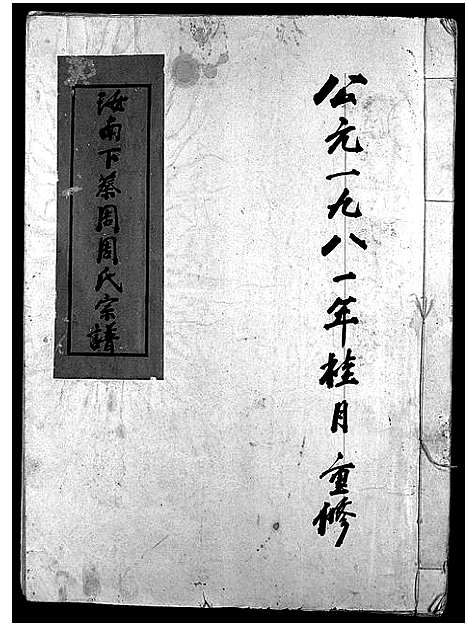 公元一九八一年桂月重修
汝南下蔡周周氏宗譜